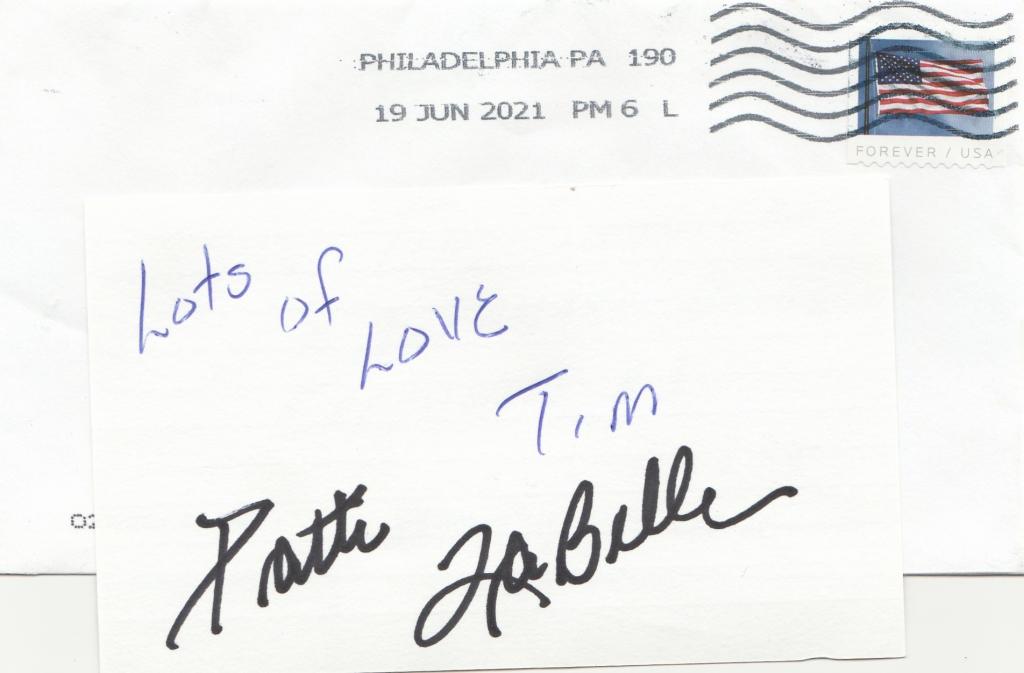 PHILADELPHIA PA 190
19 JUN 2021 PM 6 L
FOREVER / USA
Lots of Love
Tim
Patti LaBelle
02